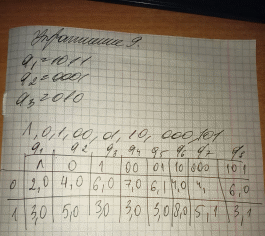 Упражнение 9.
q₁=1011
q₂=0001
q₃=010
Λ, 0, 1, 00, 01, 10, 000, 101
q₁ q₂ q₃ q₄ q₅ q₆ q₇ q₈
Λ 0 1 00 01 10 000 101
0 2,0 4,0 6,0 7,0 6,1 1,0 6,0
1 3,0 5,0 3,0 3,0 3,0 8,0 5,1 3,1